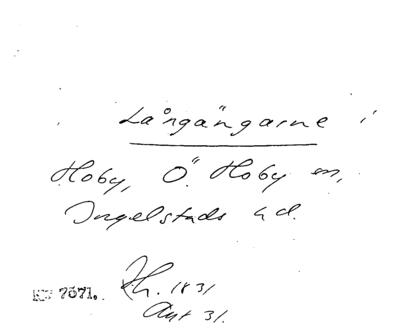 Långängarne i
Hoby, Ö. Hoby sn,
Ingelstads hd.
7671. Rh. 1831
Akt 31.